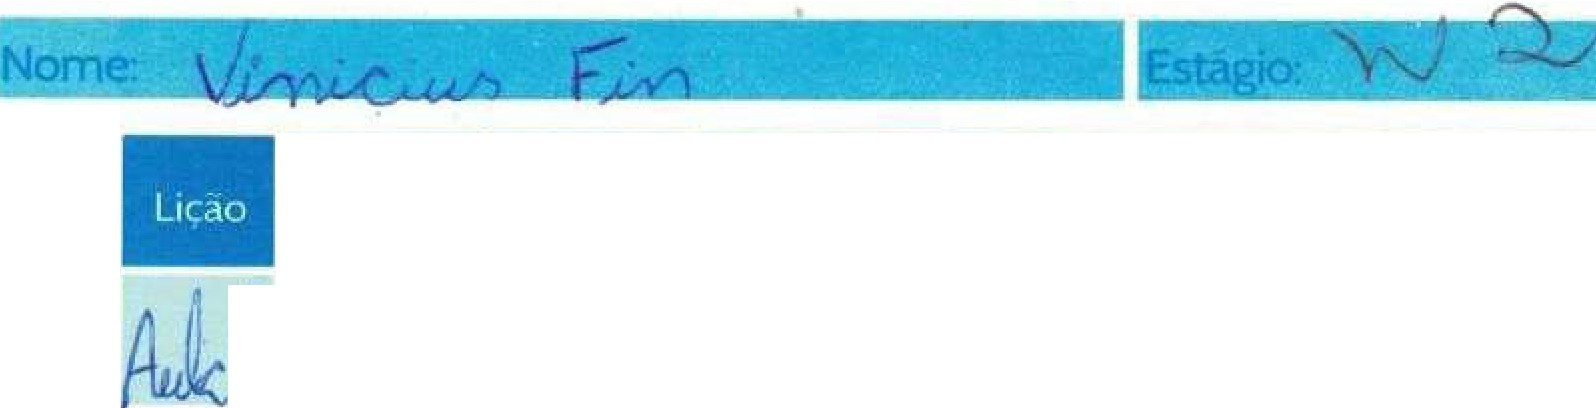 Nome: Vinicius Fin Estágio: W 2
Lição
Aula